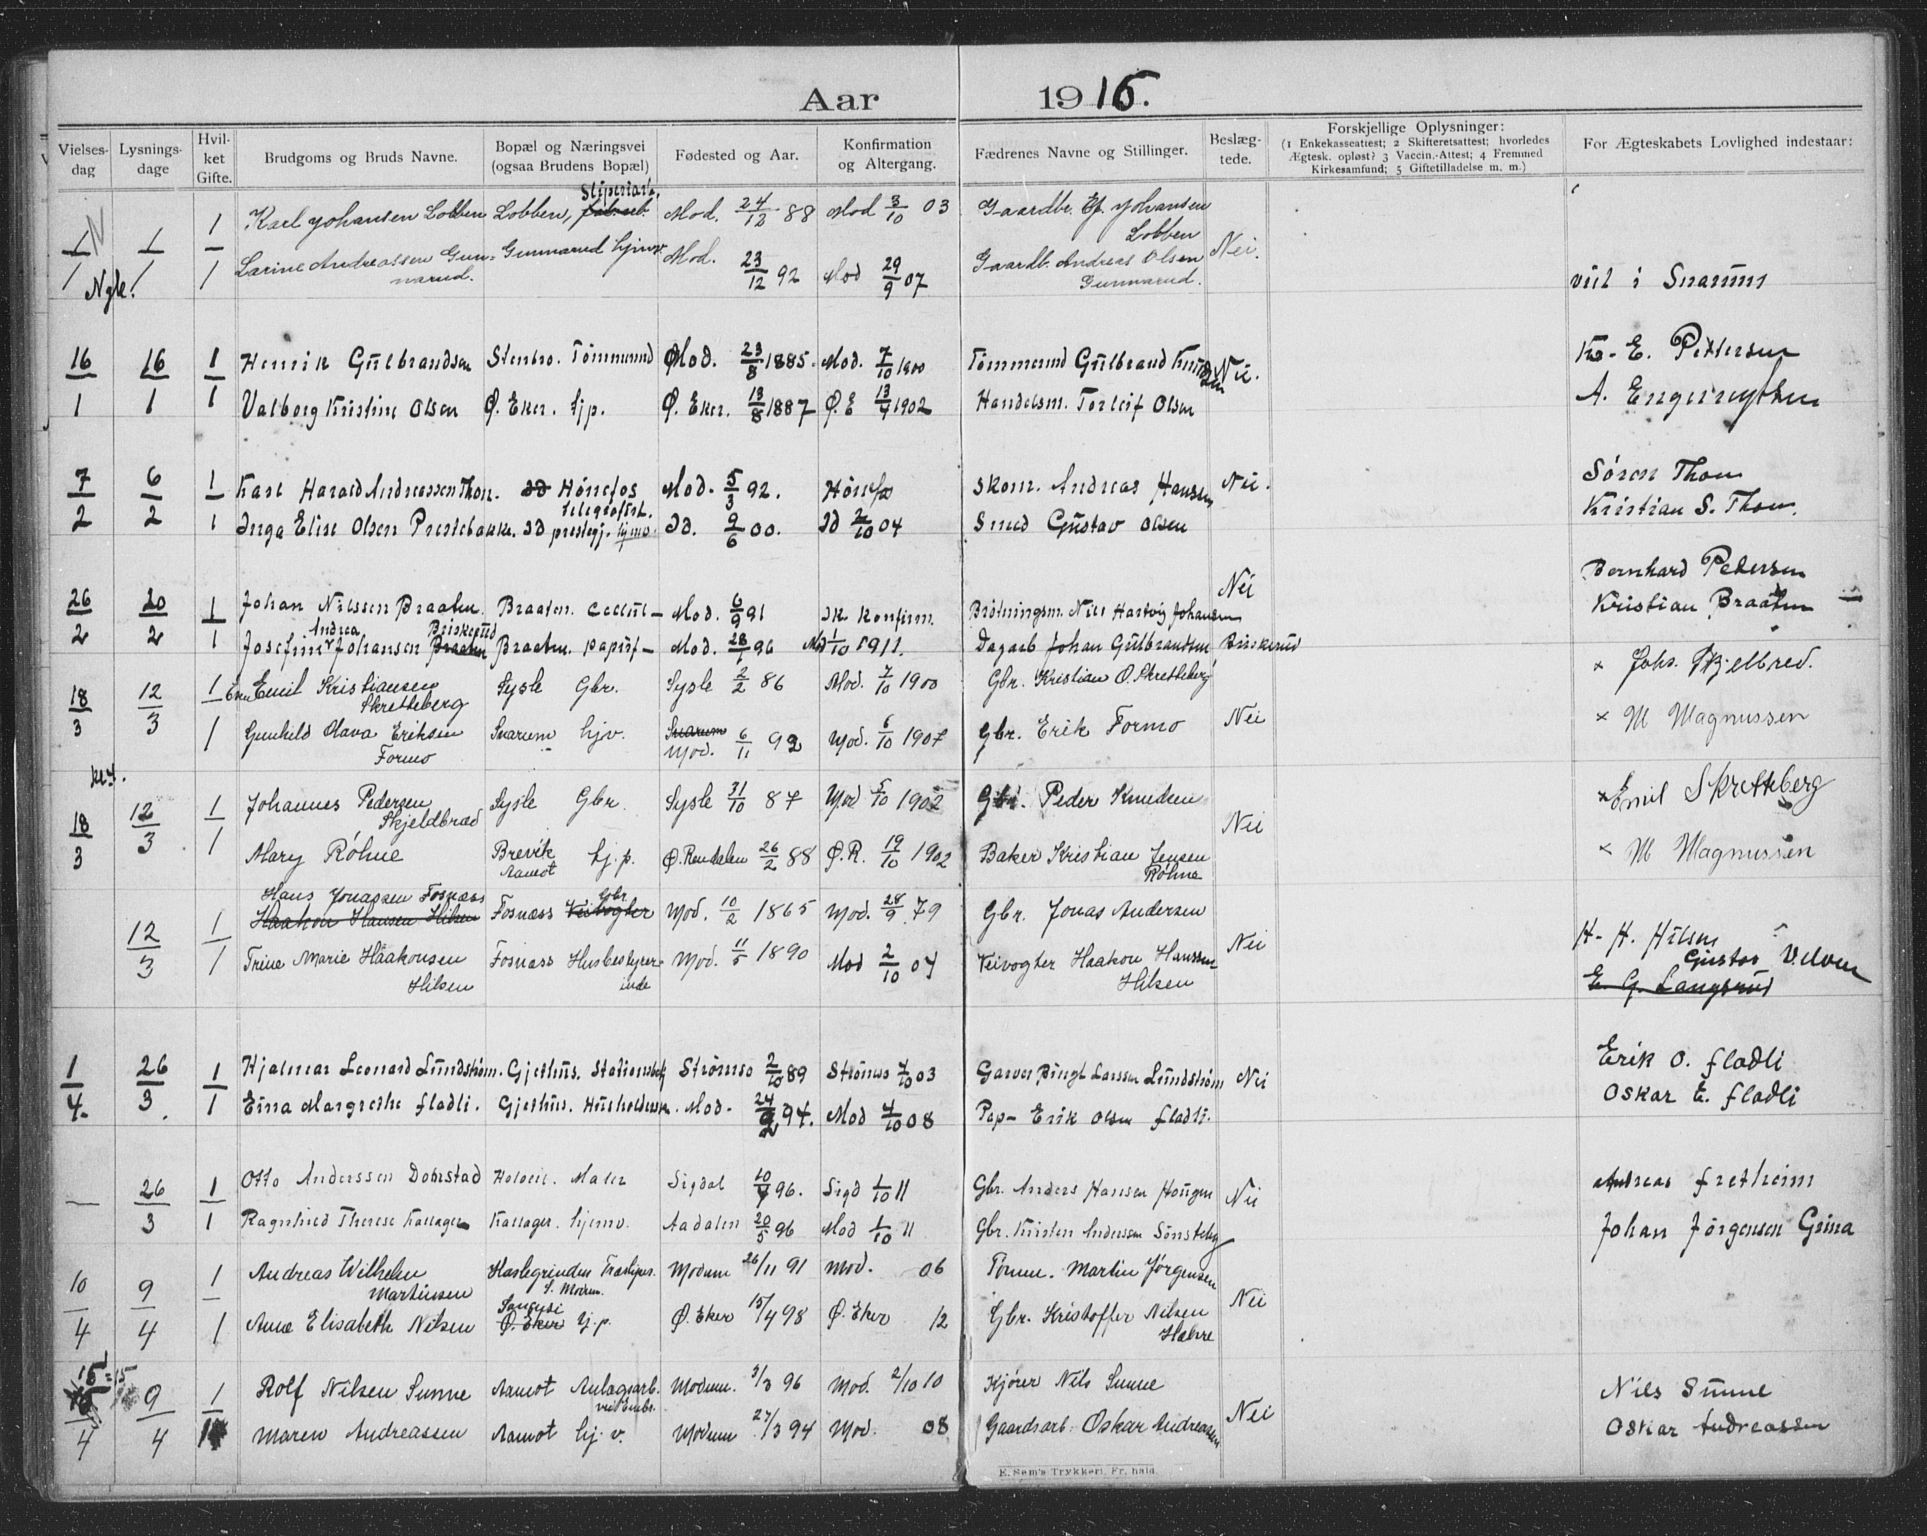 Aar 1916.
Vielses-dag
Lysnings-dage
Hvil-ket Gifte.
Brudgoms og Bruds Navne.
Bopæl og Næringsvei (ogsaa Brudens Bopæl)
Fødested og Aar.
Konfirmation og Altergang.
Fædrenes Navne og Stillinger.
Beslæg-tede.
Forskjellige Oplysninger: (1 Enkekasseattest; 2 Skifteretsattest; hvorledes Ægtesk. opløst? 3 Vaccin.-Attest; 4 Fremmed Kirkesamfund; 5 Giftetilladelse m. m.)
For Ægteskabets Lovlighed indestaar:
1/1 1/1 1 Karl Johansen Lobben Lobben, Mod. 24/12 88 Mod 3/10 03 Gaardbr. Johansen Lobben
1 Larine Andreassen Gunnarud. Gunnarud hjmv. Mod. 23/12 92 Mod 29/9 07 Gaardb. Andreas Olsen Gunnarud. Nei. viet i Snarum
16/1 16/1 1 Henrik Gulbrandsen Stenbro. Tømmerund Mod. 23/8 1885. Mod. 7/10 1900 Tømmerund Gulbrand Knudsen Nei. E. Pettersen
1 Valborg Kristine Olsen Ø. Eker. hjp. Ø. Eker. 13/8 1887 Ø. E 13/4 1902 Handelsm. Torleif Olsen A. Engernythen
7/2 6/2 1 Karl Harald Andreassen Thon. Hønefos Telegrafist. Mod. 5/3 92. Hønefos Skom. Andreas Hansen Nei. Søren Thon
1 Inga Elise Olsen Prestebakke. Id prestegj. hjmv. Id. 9/6 00. Id 2/10 04 Smed Gustav Olsen Kristian S. Thon.
26/2 20/2 1 Johan Nilssen Braaten. Braaten. Cellul- Mod. 6/9 91 Ik konfirm. Bródningsm. Nils Hartvig Johansen Nei Bernhard Pedersen
Kristian Braaten
1 Josefine Andrea Johansen Braaten Briskerud Braaten. papirf- Mod. 28/1 96 Mod 1/10 1911. Dagarb Johan Gulbrandsen Briskerud
18/3 12/3 1 Emil Kristiansen Skretteberg Sysle Gbr. Sysle 2/2 86 Mod. 7/10 1900 Gbr. Kristian O. Skretteberg × Johs. Skjelbred.
1 Gunhild Olava Eriksen Formo Snarum hjv. Snarum Mod. 6/11 92 Mod. 6/10 1907 Gbr. Erik Formo Nei × M Magnussen
kl 4.
18/3 12/3 1 Johannes Pedersen Skjeldbræd Sysle Gbr. Sysle 31/10 87 Mod 5/10 1902 Gbr. Peder Knudsen × Emil Skretteberg
1 Mary Röhne Brevik Aamot hj.p. Ø. Rendalen 26/2 88 Ø.R. 19/10 1902 Baker Kristian Jensen Röhne Nei × M Magnussen
12/3 1 Hans Jonassen Fosnæss Haakon Hansen Hilsen Fosnæss Veivogter Gbr. Mod. 10/2 1865 Mod. 28/9 79 Gbr. Jonas Andersen
1 Trine Marie Haakonsen Hilsen Fosnæss Husbestyrerinde Mod. 11/5 1890 Mod 2/10 04 Veivogter Haakon Hanssen Hilsen Nei H. H. Hilsen
Gustav Velven
E. G. Langerud
1/4. 26/3. 1 Hjalmar Leonard Lundstrøm. Gjethus. Strømsø 2/10 89 Strømsø 4/10 03 Garver Bingt Larssen Lundstrøm Nei Erik O. Fladli
1 Eina Margrethe Fladli. Gjethus. Mod. 24/2 94. Mod 4/10 08 Pap- Erik Olsen Fladli. Oskar E. Fladli
— 26/3 1 Otto Anderssen Dovrstad Maler Sigdal 10/9 96. Sigd 1/10 11 Gbr. Anders Hansen Hougen Nei Andreas Fretheim
1 Ragnhild Therese Kallager Kallager. hjemv. Aadalen 20/5 96 Mod 1/10 11 Gbr. Kristen Anderssen Sønsteby Johan Jørgensen Grina
10/4 9/4 1 Andreas Wilhelm Martinsen Haslegrinden Træsliper. S. Modum. Modum 26/11 91 Mod. 06 Tømm. Martin Jørgensen
1 Anne Elisabeth Nilsen Ø. Eker hj.p. Ø. Eker 15/4 98 Ø. Eker 12 Gbr. Kristoffer Nilsen Hæhre Nei
15/4 9/4 1 Rolf Nilsen Sunne Aamot Anlægsarb. Modum. 9/3 96 Mod. 2/10 10 Kjører Nils Sunne Nils Sunne
1 Maren Andreassen Aamot hj. v. Modum 27/3 94 Mod. 08 Gaardsarb. Oskar Andreassen Nei Oskar Andreassen
E. Sem's Trykkeri, Fr. hald.